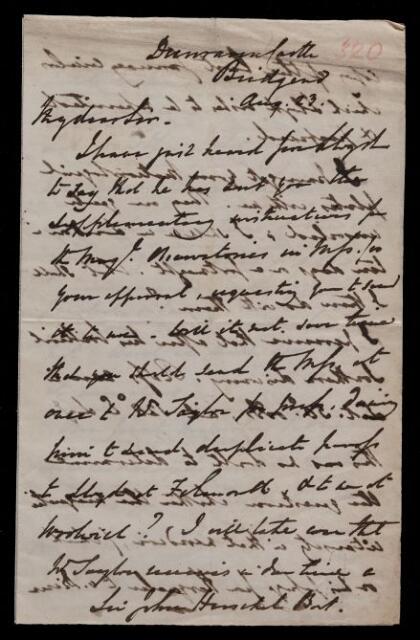 Dunraven Castle
320
Bridgend
Aug. 23.
My dear Sir.
I have just heard from Lloyd
to say that he has sent you the
supplementary instructions for
the Mag.c Observatories in Mss. for
your approval, requesting you to send
it to me. Will it not save time
if you should send the Mss. at
once to Mr. Taylor for press, desiring
him to send duplicate proofs
to Lloyd at , & to me at
Woolwich? I will take care that
Mr. Taylor receives in due time a
Sir John Herschel Bart.